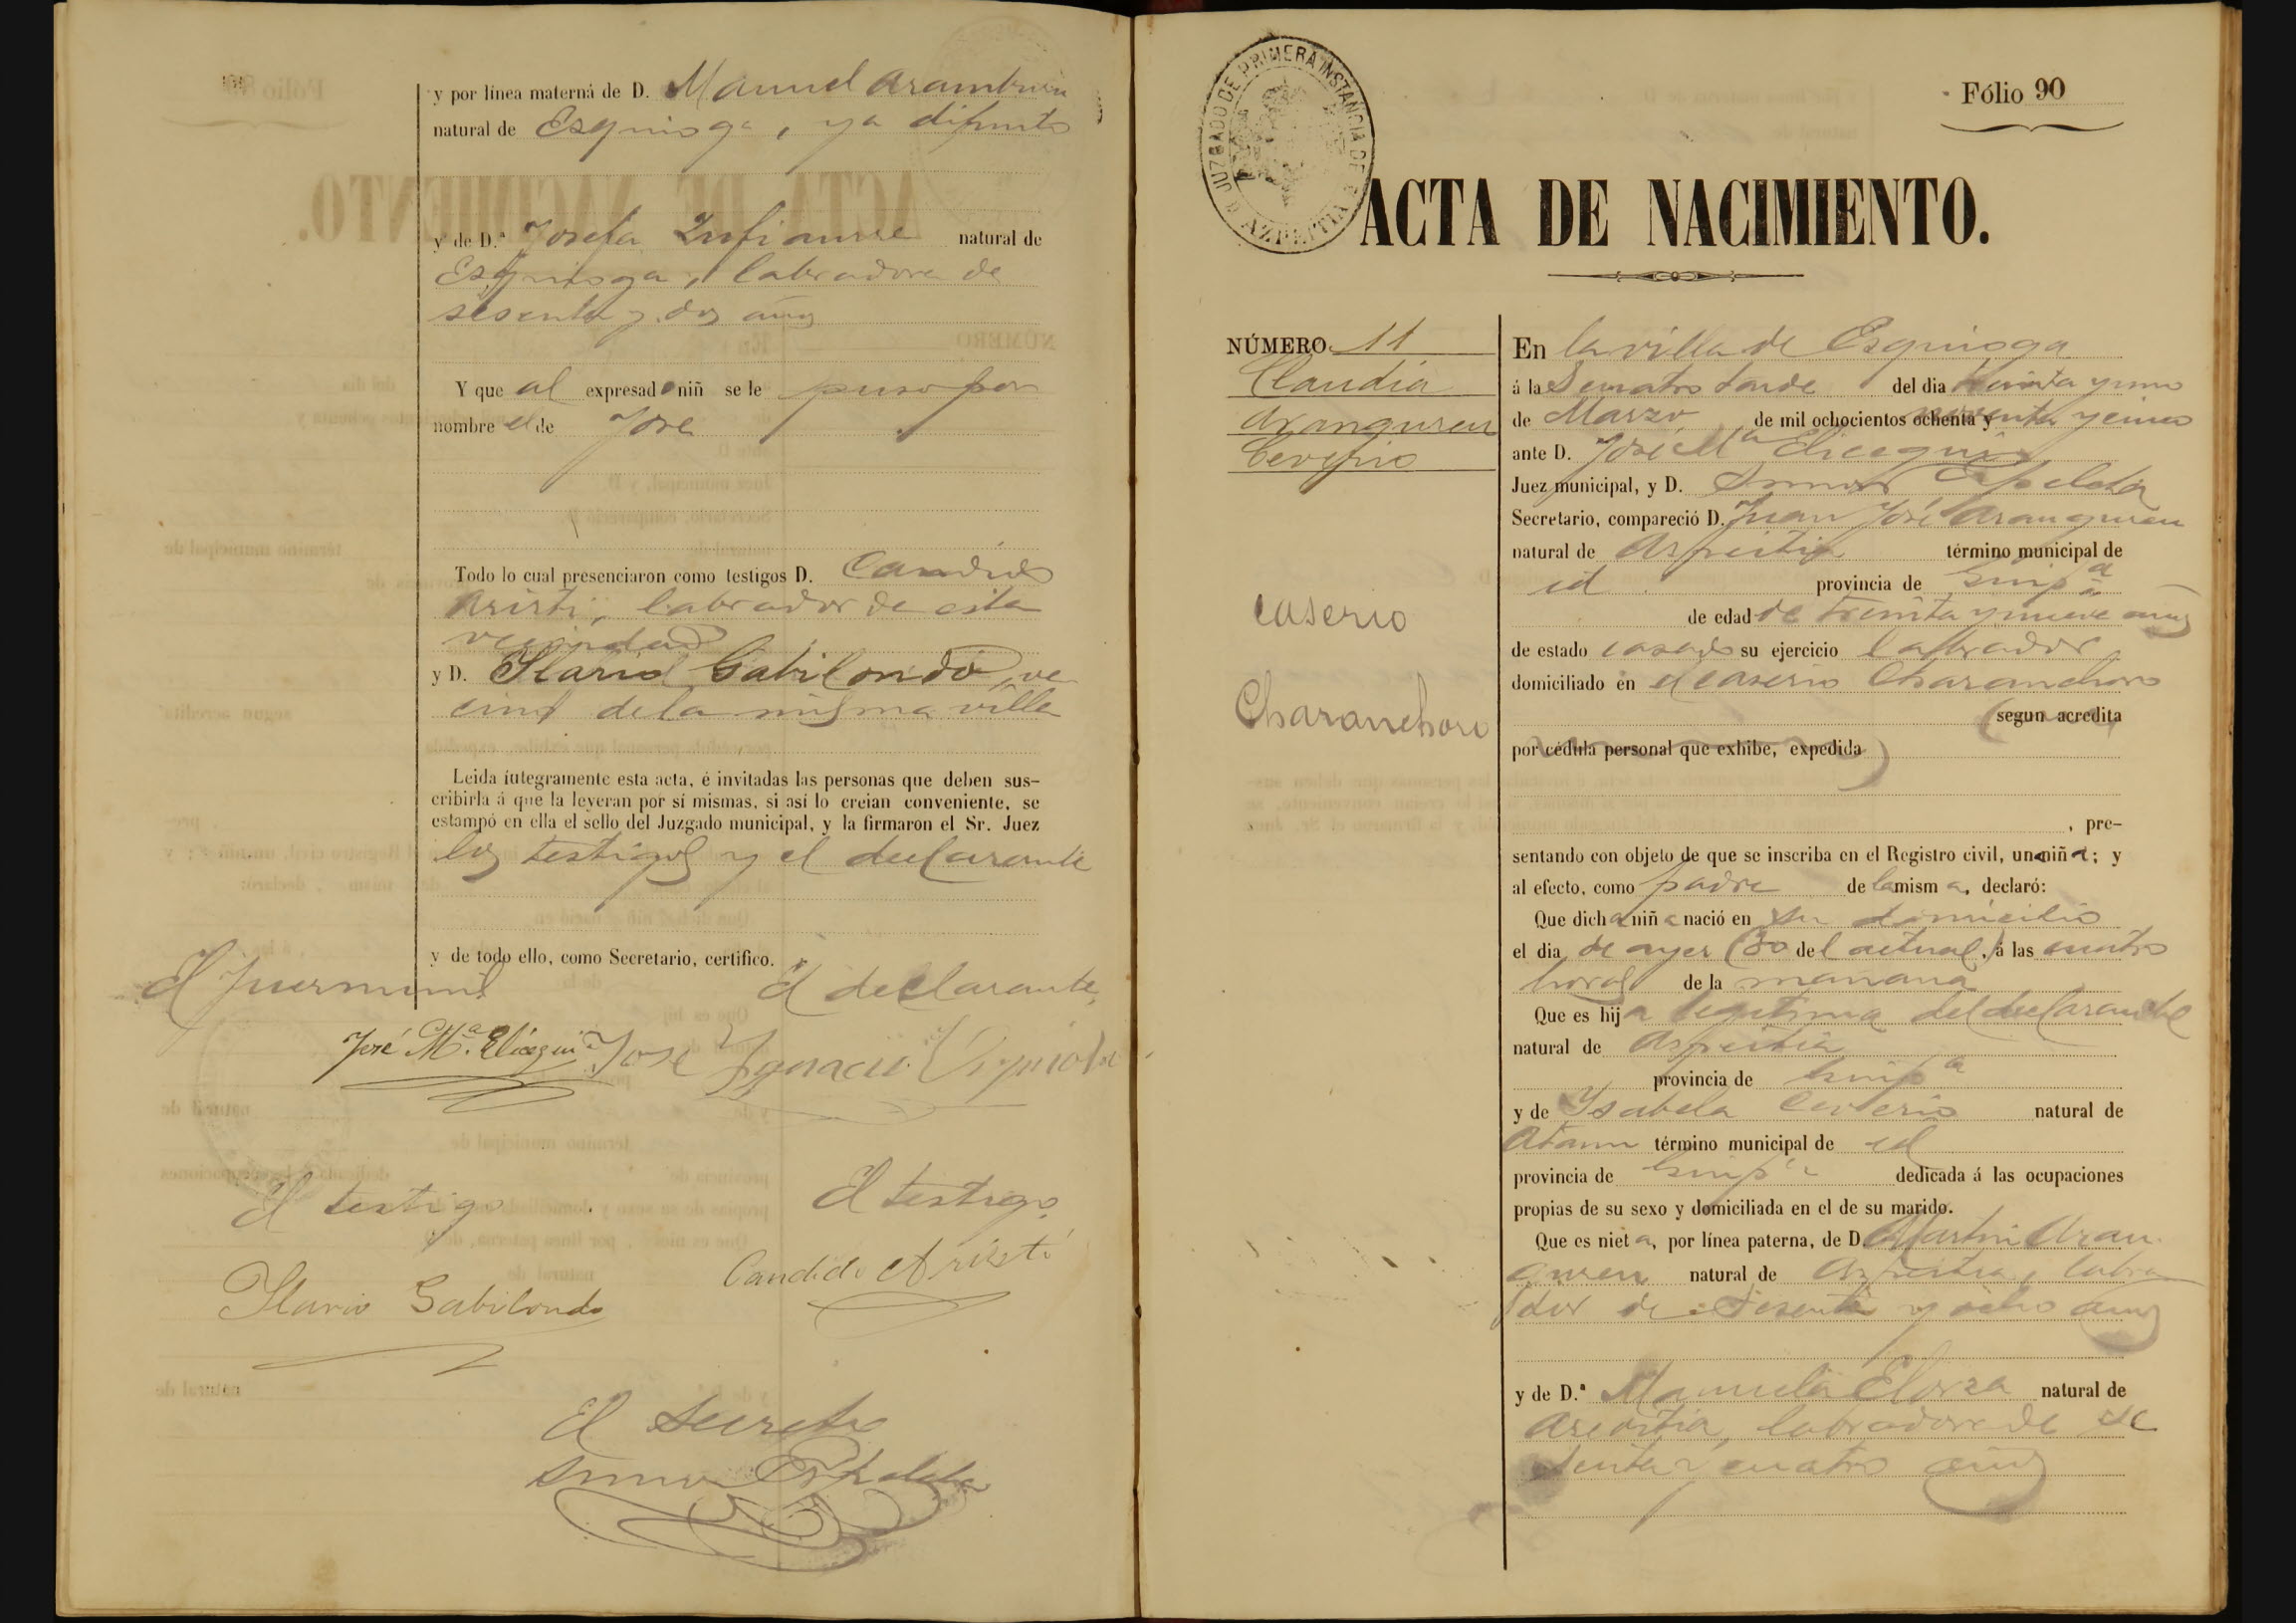 y por línea materna de D. Manuel Aramburu
natural de Ezquioga, ya difunto
y de D.ª Josefa natural de
Ezquioga, labradora de
sesenta y dos años
Y que al expresado niñ se le puso por
nombre el de José
Todo lo cual presenciaron como testigos D. Candido
Aristi, labrador de esta
vecindad
y D. Ilario Gabilondo, ve
cino de la misma villa
Leida íntegramente esta acta, é invitadas las personas que deben sus-
cribirla á que la leyeran por sí mismas, si así lo creian conveniente, se
estampó en ella el sello del Juzgado municipal, y la firmaron el Sr. Juez
los testigos y el declarante
y de todo ello, como Secretario, certifico.
El Juez mun.l El declarante,
José M.ª Elicegui José Ignacio
El testigo El testigo
Ilario Gabilondo Candido Aristi
El Secreto
Simon Ezpeleta
JUZGADO DE PRIMERA INSTANCIA DE AZPEITIA
Fólio 90
ACTA DE NACIMIENTO.
NÚMERO 11
Claudia
Aranguren
Ceverio
caserio
Charanchore
En la villa de Ezquioga
á las cuatro tarde del dia treinta y uno
de Marzo de mil ochocientos ochenta y noventa y cinco
ante D. José M.ª Elicegui
Juez municipal, y D. Simon Ezpeleta
Secretario, compareció D. Juan José Aranguren
natural de Azpeitia término municipal de
id. provincia de Guip.a
de edad de treinta y nueve años
de estado casado su ejercicio labrador
domiciliado en el caserio Charanchore
(segun acredita
por cédula personal que exhibe, expedida)
, pre-
sentando con objeto de que se inscriba en el Registro civil, una niña; y
al efecto, como padre de la misma, declaró:
Que dicha niña nació en su domicilio
el dia de ayer (30 del actual,) á las cuatro
horas de la mañana
Que es hija legitima del declarante
natural de Azpeitia
provincia de Guip.a
y de Ysabela Ceverio natural de
Ataun término municipal de id
provincia de Guip.a dedicada á las ocupaciones
propias de su sexo y domiciliada en el de su marido.
Que es nieta, por línea paterna, de D. Martin Aran
guren natural de Azpeitia, labra
dor de sesenta y ocho años
y de D.ª Manuela Elorza natural de
Azcoitia, labradora de se
senta y cuatro años